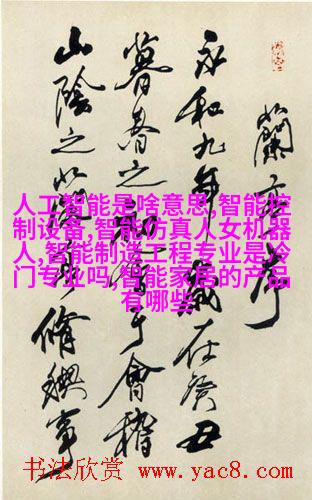 蘭亭序
永和九年歲在癸丑
暮春之初會于會稽
山陰之蘭亭脩禊事
人工智能是啥意思,智能控
制设备,智能仿真人女机器
人,智能制造工程专业是冷
门专业吗,智能家居的产品
有哪些
书法欣赏 www.yac8.com